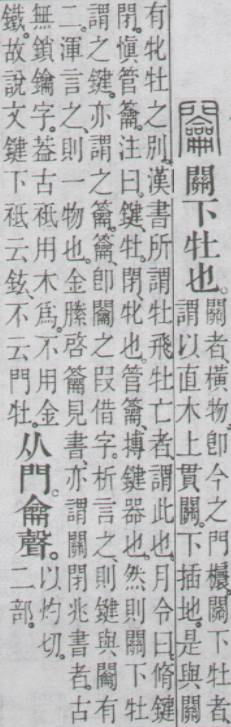 𨷲關下牡也。
關者、橫物。即今之門櫎。關下牡者
謂以直木上貫關。下插地。是與關
有牝牡之別。漢書所謂牡飛牡亡者、謂此也。月令曰。脩鍵
閉。愼管籥。注曰。鍵、牡。閉、牝也。管籥、搏鍵器也。然則關下牡
謂之鍵。亦謂之籥。籥、卽𨷲之叚借字。析言之、則鍵與𨷲有
二。渾言之、則一物也。金縢啓籥見書。亦謂關閉兆書者。古
無鎖鑰字。葢古祇用木爲。不用金
鐵。故說文鍵下祇云鉉、不云門牡。
从門。龠聲。
以灼切。
二部。